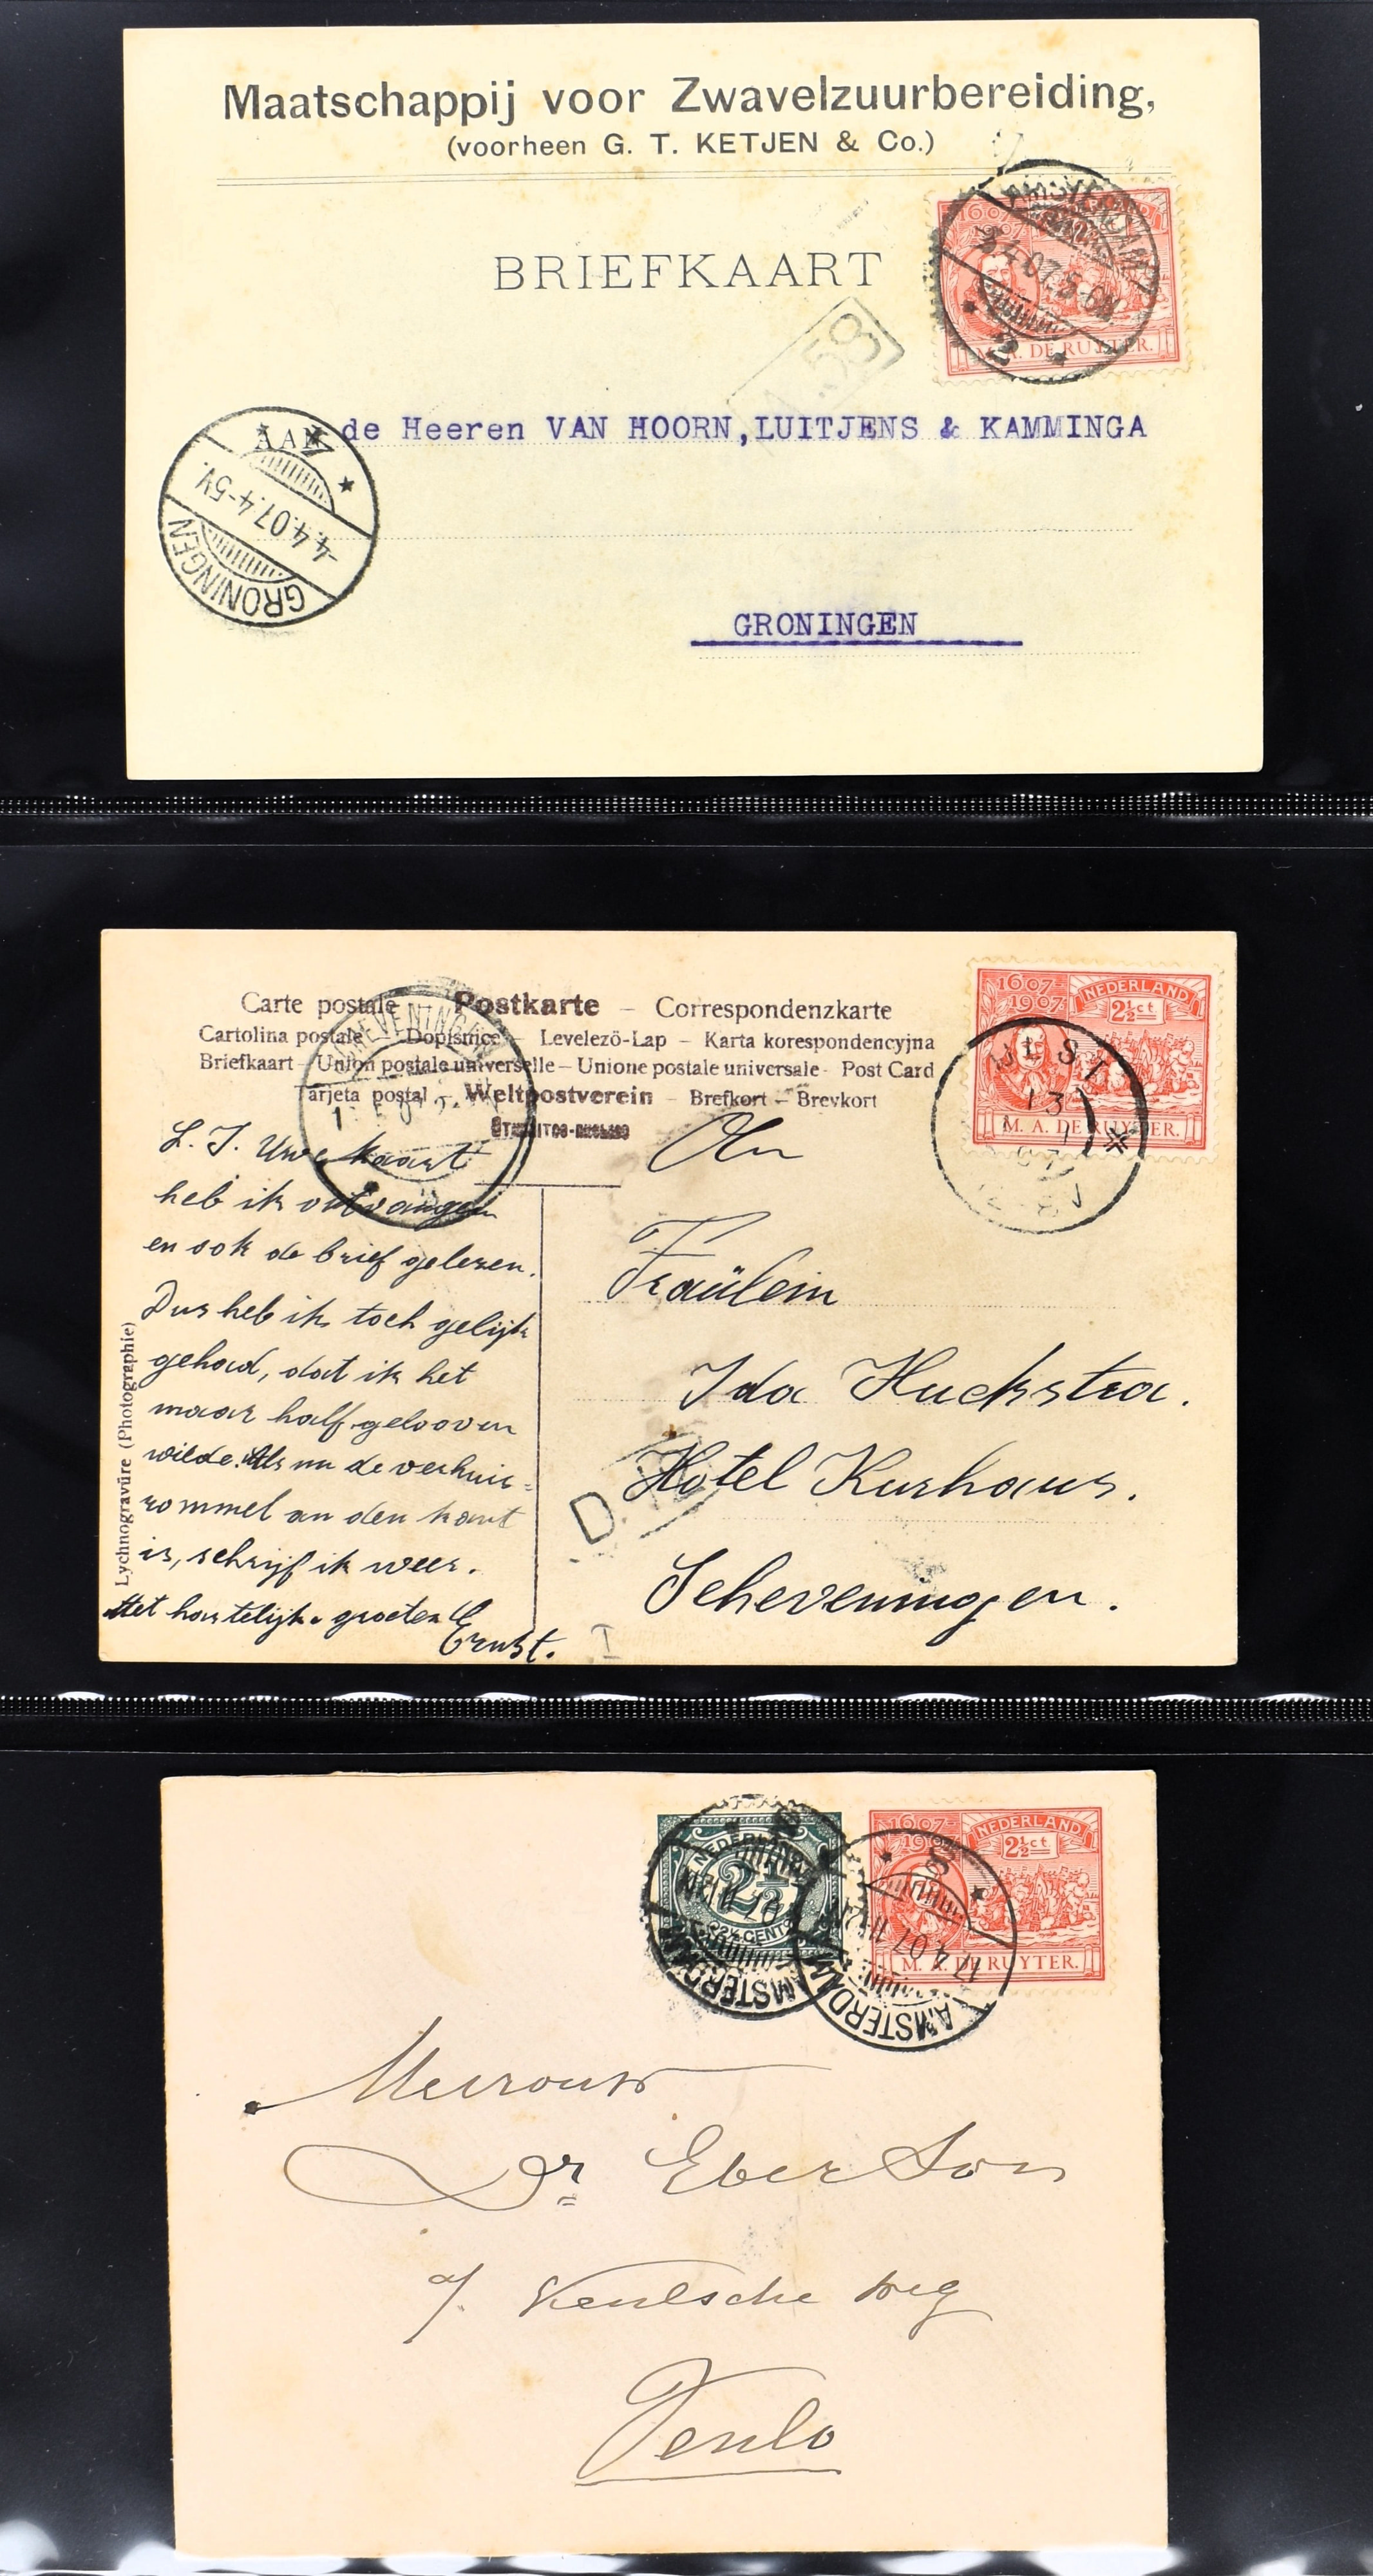 Maatschappij voor Zwavelzuurbereiding,
(voorheen G. T. KETJEN & Co.)
BRIEFKAART
1607
1907
M. A. DE RUYTER.
AMSTERDAM
3.4.07.5-6N.
2
A.58
AAN de Heeren VAN HOORN, LUITJENS & KAMMINGA
4.4.07.4-5V.
GRONINGEN
GRONINGEN
Carte postale – Postkarte – Correspondenzkarte
Cartolina postale – Dopisnice – Levelező-Lap – Karta korespondencyjna
Briefkaart – Union postale universelle – Unione postale universale - Post Card
Tarjeta postal – Weltpostverein – Brefkort – Brevkort
1607
1907
NEDERLAND
2½ ct
M. A. DE RUYTER.
13
L. I. Uwe kaart
heb ik ontvangen
en ook de brief gelezen.
Dus heb ik toch gelijk
gehad, dat ik het
maar half gelooven
wilde. Als nu de verhuis=
rommel an den kant
is, schrijf ik weer.
Met hartelijke groeten
Ernst.
Lychnogravüre (Photographie)
An
Fraülein
Ida Huckstra.
Hotel Kurhaus.
Scheveningen.
D.
I
NEDERLAND
2½
2½ CENT
AMSTERDAM
1607
NEDERLAND
2½ ct
M. A. DE RUYTER.
8
17.4.07
AMSTERDAM
Mevrouw
Dr Eberson
a/ Keulsche weg
Venlo